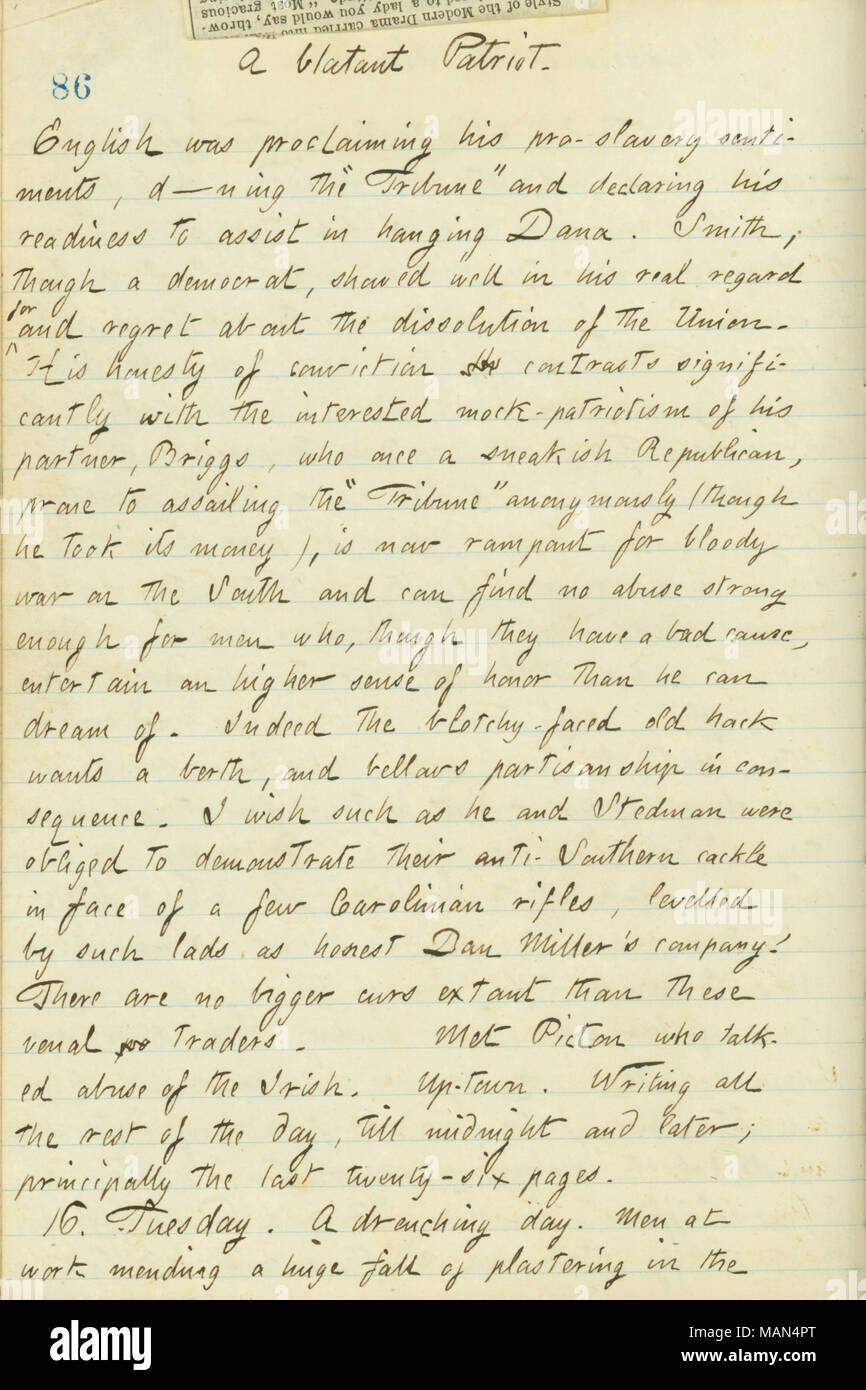 Style of the Modern Drama carried into
to a lady you would say, throw-
Most gracious
A blatant Patriot.
86
English was proclaiming his pro-slavery senti-
ments, d—ning the "Tribune" and declaring his
readiness to assist in hanging Dana. Smith,
though a democrat, showed well in his real regard
for and regret about the dissolution of the Union.
His honesty of conviction contrasts signifi-
cantly with the interested mock-patriotism of his
partner, Briggs, who once a sneakish Republican,
prone to assailing the "Tribune" anonymously (though
he took its money), is now rampant for bloody
war on the South and can find no abuse strong
enough for men who, though they have a bad cause,
entertain an higher sense of honor than he can
dream of. Indeed the blotchy-faced old hack
wants a berth, and bellows partisanship in con-
sequence. I wish such as he and Stedman were
obliged to demonstrate their anti-Southern cackle
in face of a few Carolinian rifles, levelled
by such lads as honest Dan Miller's company!
There are no bigger curs extant than these
venal traders. Met Picton who talk-
ed abuse of the Irish. Up-town. Writing all
the rest of the day, till midnight and later;
principally the last twenty-six pages.
16. Tuesday. A drenching day. Men at
work mending a huge fall of plastering in the
alamy
Image ID: MAN4PT
www.alamy.com